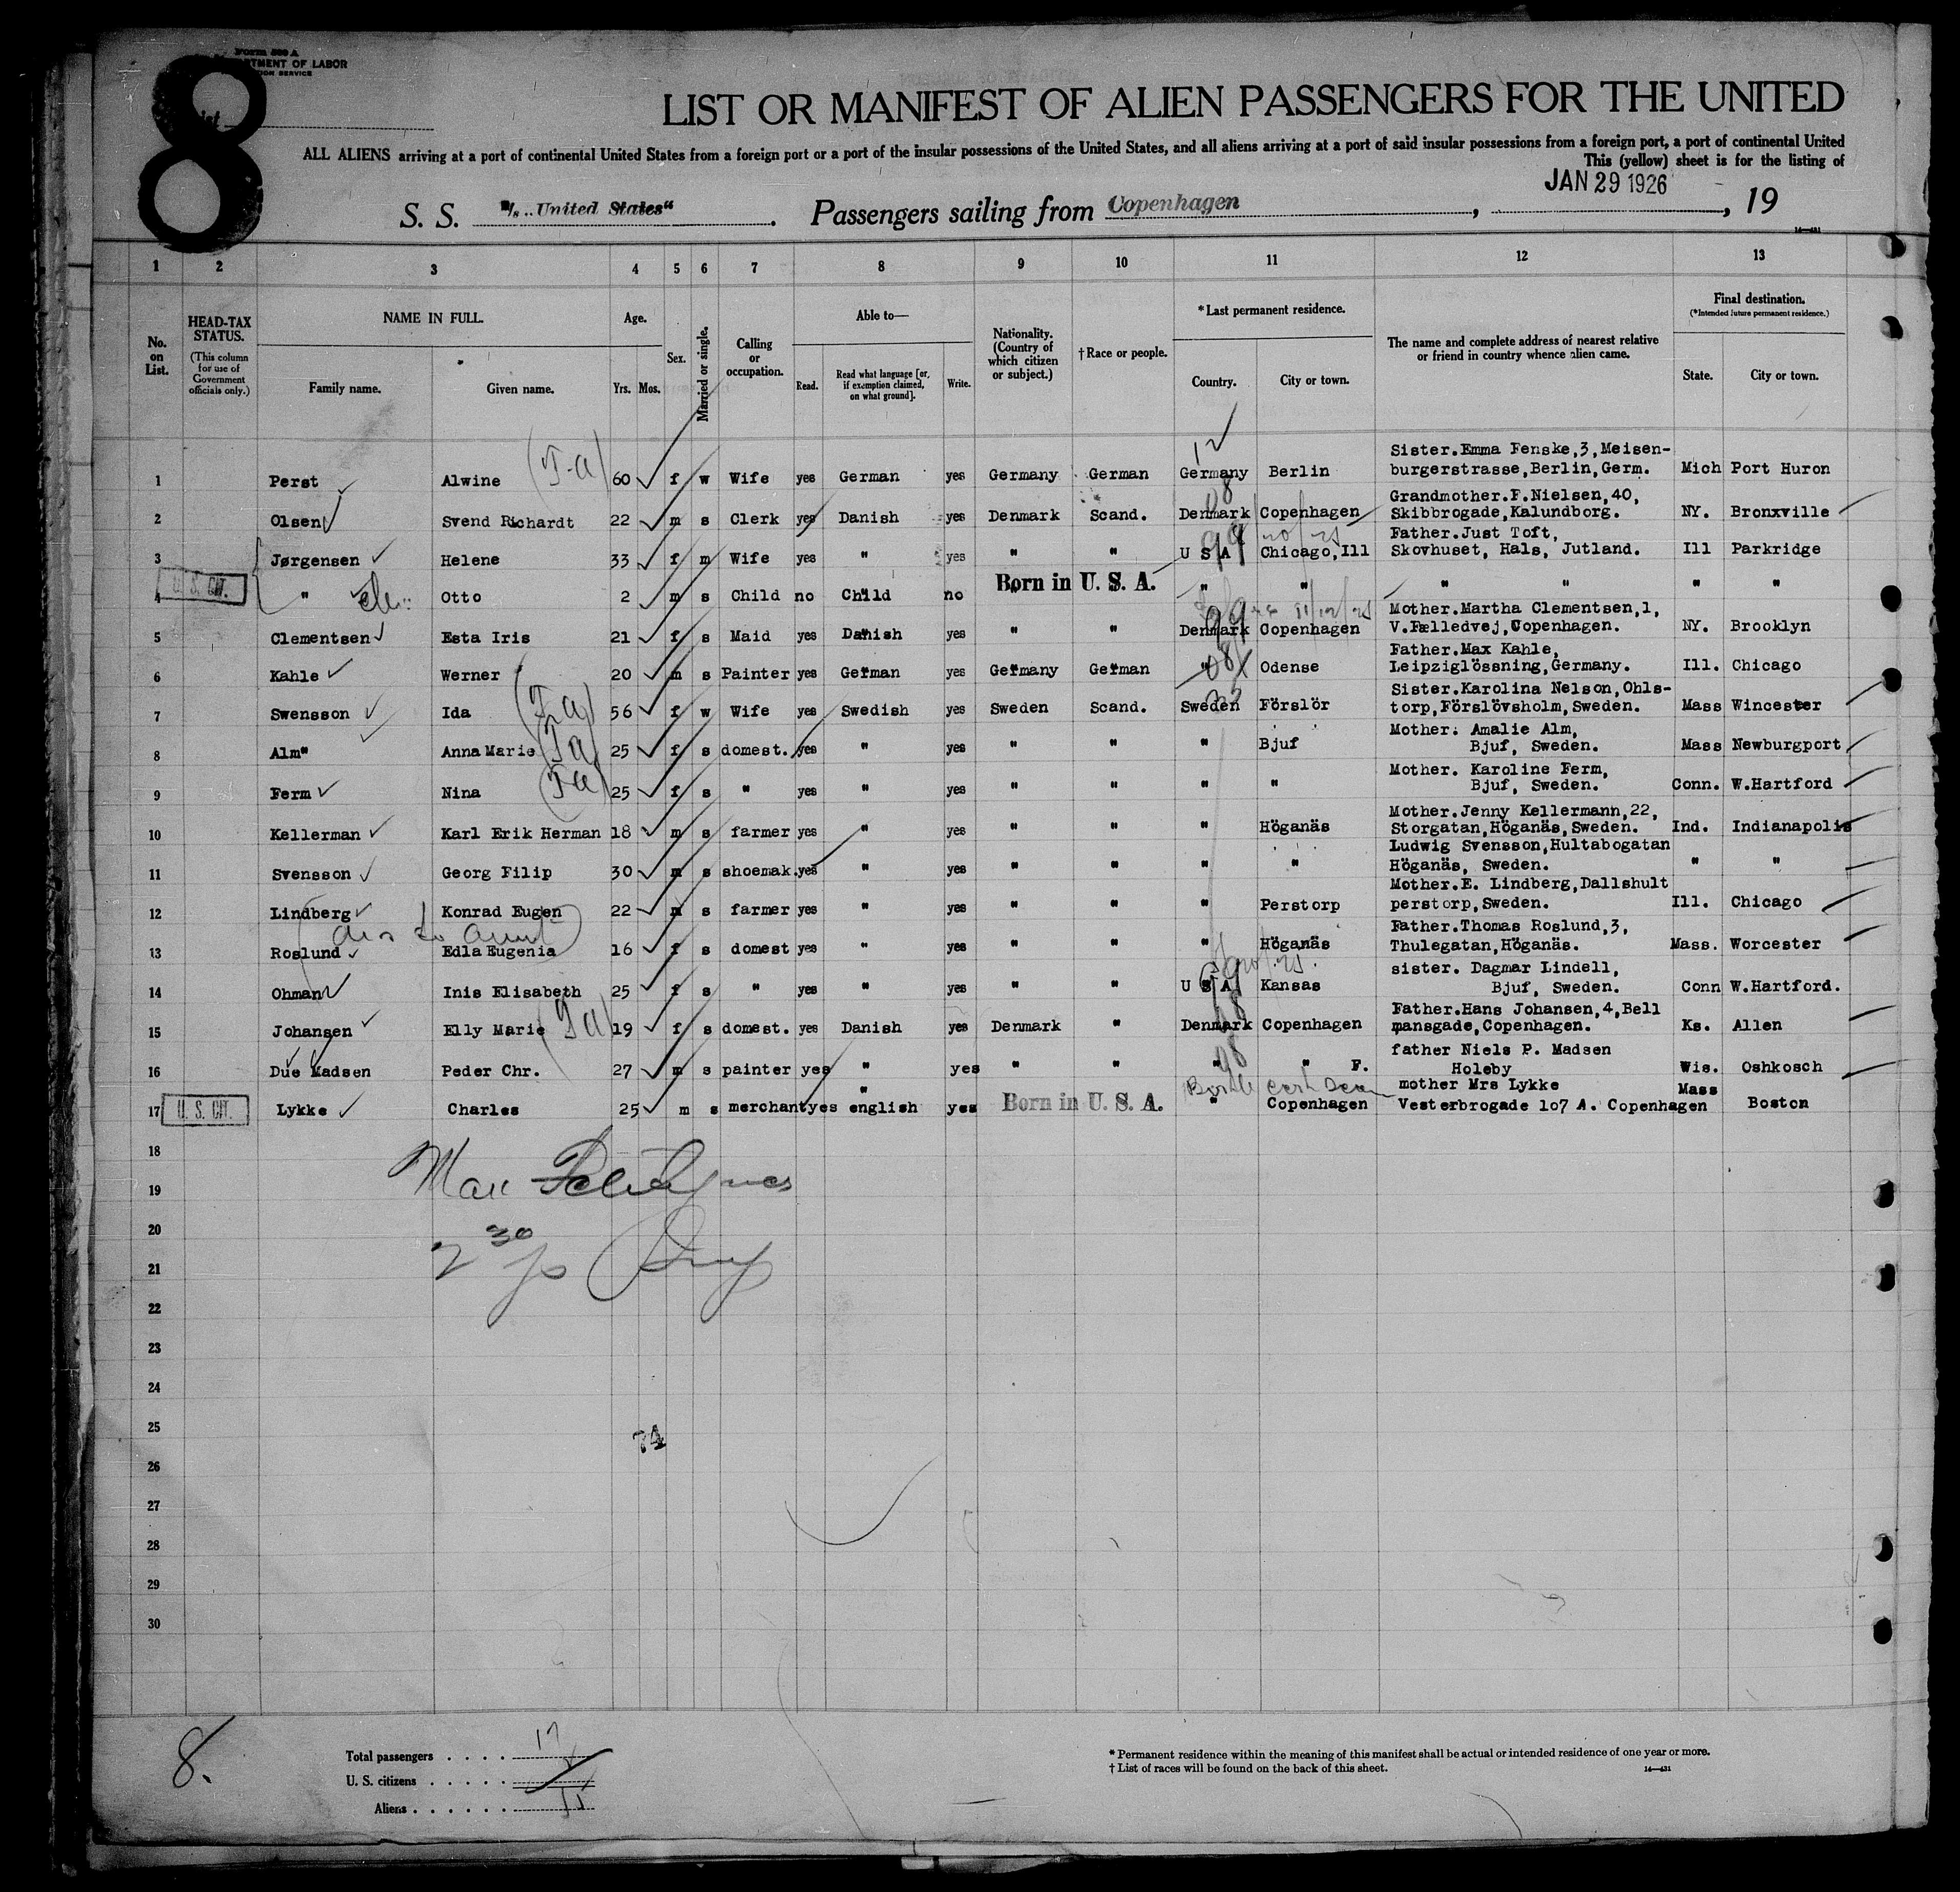 Form 500 A
DEPARTMENT OF LABOR
8
LIST OR MANIFEST OF ALIEN PASSENGERS FOR THE UNITED
ALL ALIENS arriving at a port of continental United States from a foreign port or a port of the insular possessions of the United States, and all aliens arriving at a port of said insular possessions from a foreign port, a port of continental United
This (yellow) sheet is for the listing of
JAN 29 1926
S. S. "/s „United States" . Passengers sailing from Copenhagen , , 19
1 2 3 4 5 6 7 8 9 10 11 12 13
No. on List.
HEAD-TAX STATUS.
(This column for use of Government officials only.)
NAME IN FULL.
Family name. Given name.
Age.
Yrs. Mos.
Sex.
Married or single.
Calling or occupation.
Able to—
Read. Read what language [or, if exemption claimed, on what ground]. Write.
Nationality. (Country of which citizen or subject.)
† Race or people.
* Last permanent residence.
Country. City or town.
The name and complete address of nearest relative or friend in country whence alien came.
Final destination.
(*Intended future permanent residence.)
State. City or town.
12
1 Perst Alwine (T-a) 60 f w Wife yes German yes Germany German Germany Berlin Sister.Emma Fenske,3,Meisen-burgerstrasse,Berlin,Germ. Mich Port Huron
2 Olsen Svend Richardt 22 m s Clerk yes Danish yes Denmark Scand. Denmark Copenhagen Grandmother.F.Nielsen,40, Skibbrogade,Kalundborg. NY. Bronxville
3 Jørgensen Helene 33 f m Wife yes " yes " " U S A Chicago,Ill Father.Just Toft, Skovhuset, Hals, Jutland. Ill Parkridge
U. S. CIT.
4 " Otto 2 m s Child no Child no Born in U. S. A. " " " " " "
5 Clementsen Esta Iris 21 f s Maid yes Danish yes " " Denmark Copenhagen Mother.Martha Clementsen,1, V.Fælledvej,Copenhagen. NY. Brooklyn
6 Kahle Werner 20 m s Painter yes German yes Germany German " Odense Father.Max Kahle, Leipziglössning,Germany. Ill. Chicago
7 Swensson Ida (T-a) 56 f w Wife yes Swedish yes Sweden Scand. Sweden Förslör Sister.Karolina Nelson,Ohls-torp,Förslövsholm,Sweden. Mass Wincester
8 Alm" Anna Marie (Ta) 25 f s domest. yes " yes " " " Bjuf Mother. Amalie Alm, Bjuf, Sweden. Mass Newburgport
9 Ferm Nina (Ta) 25 f s " yes " yes " " " " Mother. Karoline Ferm, Bjuf, Sweden. Conn. W.Hartford
10 Kellerman Karl Erik Herman 18 m s farmer yes " yes " " " Höganäs Mother.Jenny Kellermann,22, Storgatan,Höganäs,Sweden. Ind. Indianapolis
11 Svensson Georg Filip 30 m s shoemak. yes " yes " " " " Ludwig Svensson,Hultabogatan Höganäs, Sweden. " "
12 Lindberg Konrad Eugen 22 m s farmer yes " yes " " " Perstorp Mother.E. Lindberg,Dallshult perstorp,Sweden. Ill. Chicago
13 Roslund Edla Eugenia 16 f s domest yes " yes " " " Höganäs Father.Thomas Roslund,3, Thulegatan,Höganäs. Mass. Worcester
14 Ohman Inis Elisabeth 25 f s " yes " yes " " U S A Kansas sister. Dagmar Lindell, Bjuf, Sweden. Conn W.Hartford.
15 Johansen Elly Marie (Ta) 19 f s domest. yes Danish yes Denmark " Denmark Copenhagen Father.Hans Johansen,4,Bell mansgade,Copenhagen. Ks. Allen
16 Due Madsen Peder Chr. 27 m s painter yes " yes " " " " F. father Niels P. Madsen Holeby Wis. Oshkosch
17 U. S. CIT. Lykke Charles 25 m s merchant yes " english yes Born in U. S. A. " Copenhagen mother Mrs Lykke Vesterbrogade 107 A. Copenhagen Mass Boston
18
19
20
21
22
23
24
25
26
27
28
29
30
74
8.
Total passengers . . . . . 17
U. S. citizens . . . . . 2
Aliens . . . . . . 15
* Permanent residence within the meaning of this manifest shall be actual or intended residence of one year or more.
† List of races will be found on the back of this sheet.
14—431